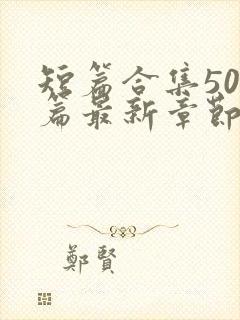 短篇合集50
篇最新章節
鄭賢